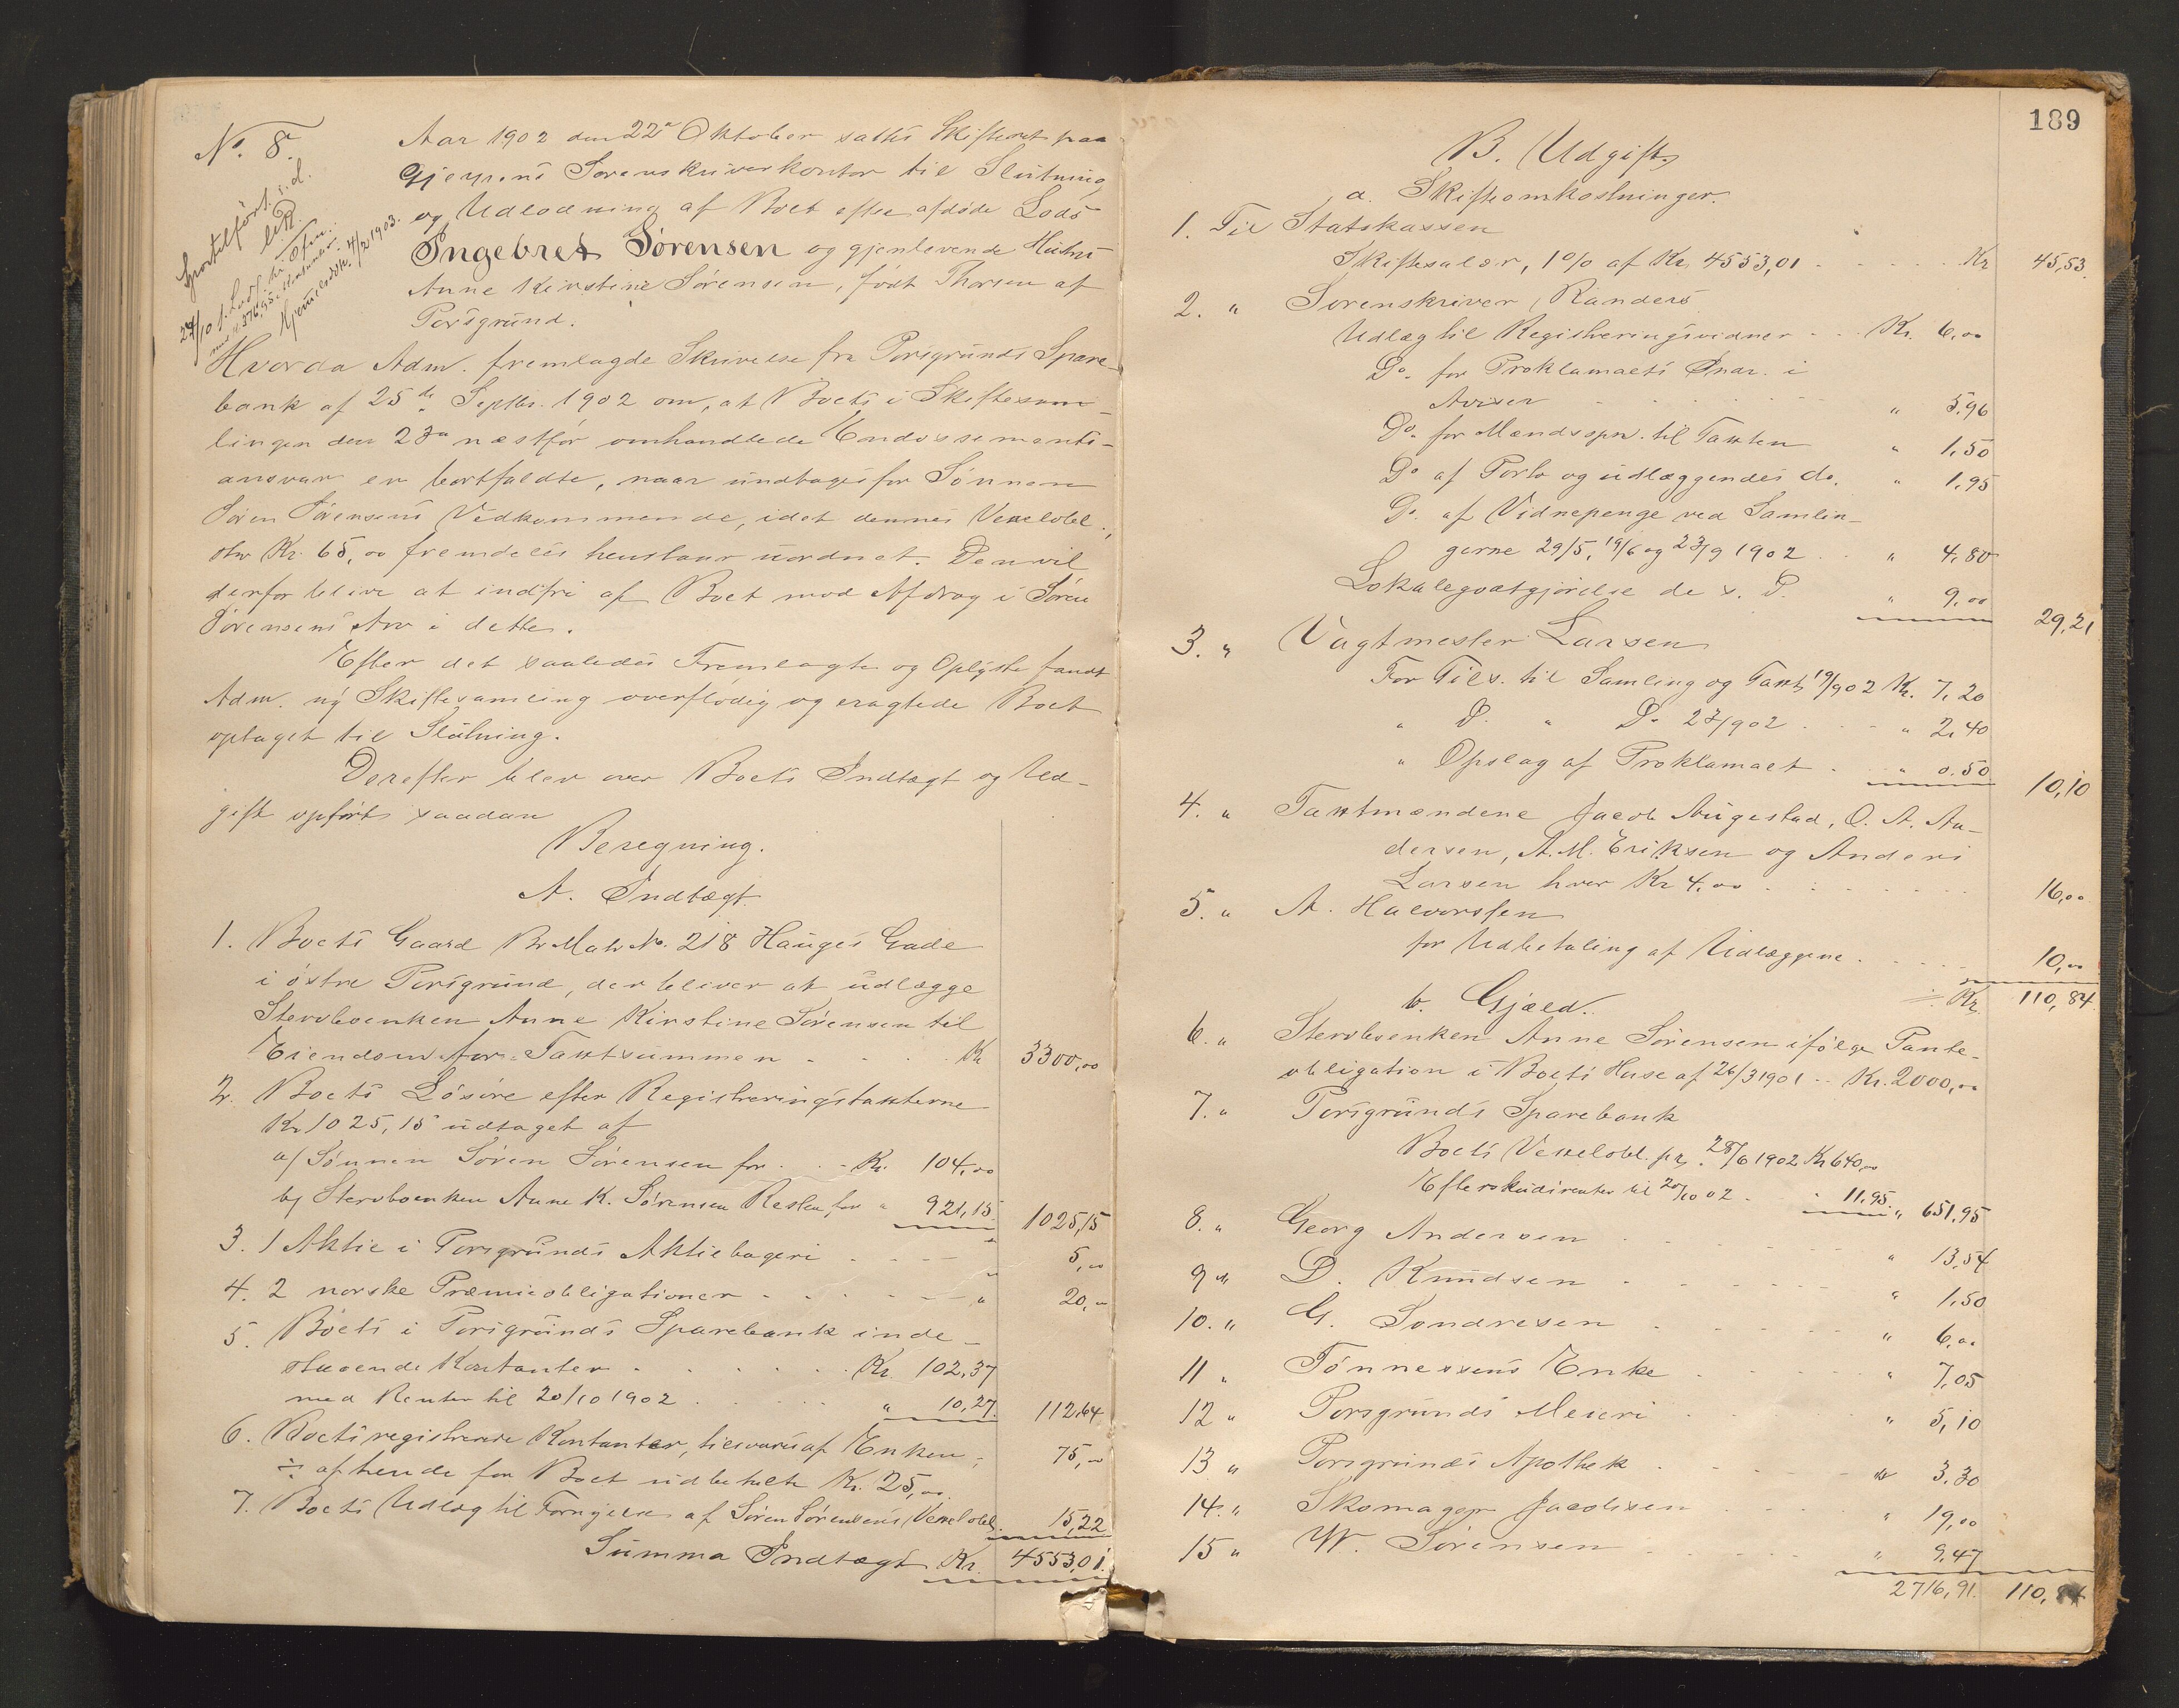 No. 8.
Sportelført s. d.
Aar 1902 den 22de Oktober sattes Skifteret paa
Gjerpens Sorenskriverkontor til Slutning
og Udlodning af Boet efter afdøde Lods
Ingebret Sørensen og gjenlevende Hustru
Anne Kirstine Sørensen, født Thorsen af
Porsgrund.
Hvorda Adm. fremlagde Skrivelse fra Porsgrunds Spare-
bank af 25de Septbr. 1902 om, at Boets i Skiftesam-
lingen den 23de næstfør omhandlede Endossements-
ansvar er bortfaldte, naar undtages for Sønnen
Søren Sørensens Vedkommende, idet dennes Vexelobl.,
stor Kr. 65,00 fremdeles henstaar uordnet. Den vil
derfor blive at indfri af Boet mod Afdrag i Søren
Sørensens Arv i dette.
Efter det saaledes Fremlagte og Oplyste fandt
Adm. ny Skiftesamling overflødig og eragtede Boet
optaget til Slutning.
Derefter blev over Boets Indtægt og Ud-
gift opført saadan
Beregning.
A. Indtægt
1. Boets Gaard Br Matr No. 218 Hauges Gade
i østre Porsgrund, der bliver at udlægge
Stervboenken Anne Kirstine Sørensen til
Eiendom for Taxtsummen . . . . Kr 3300,00
2. Boets Løsøre efter Registreringstaxterne
Kr 1025,15 udtaget af
a/ Sønnen Søren Sørensen for . . - Kr. 104,00
b/ Stervboenken Anne K. Sørensen Resten, for " 921,15 " 1025,15
3. 1 Aktie i Porsgrunds Aktiebageri . . . " 5,00
4. 2 norske Præmieobligationer - . . . . " 20,00
5. Boets i Porsgrunds Sparebank inde-
staaende Kontanter . . . . . Kr. 102,37
med Renter til 20/10 1902 . . . . " 10,27 112,64
6. Boets registrerede Kontanter, tilsvares af Enken, 75,00
÷ af hende for Boet udbetalt Kr. 25,00
7. Boets Udlæg til Fornyelse af Søren Sørensens Vexelobl. 15,22
Summa Indtægt Kr. 4553,01.
189
B. Udgift
a. Skifteomkostninger.
1. Til Statskassen
Skiftesalær, 1% af Kr. 4553,01 . . . . . Kr 45,53.
2. " Sorenskriver Randers
Udlæg til Registreringsvidner . . Kr. 6,00
Do. for Proklamaets Indr. i
Aviser . . . . . . " 5,96
Do. for Mandsopn. til Taxten " 1,50
Do af Porto og udlæggendes do. " 1,95
Do. af Vidnepenge ved Samlin-
gerne 29/5, 19/6 og 23/9 1902 . . " 4,80
Lokalegodtgjørelse de s. D. " 9,00 29,21
3. " Vagtmester Larsen
For Tils. til Samling og Taxt 19/902 Kr. 7,20
" D. " Do 23/902 . . . " 2,40
" Opslag af Proklamaet . " 0,50 10,10
4. " Taxtmændene Jacob Augestad, O. A. An-
dersen, A. M. Eriksen og Anders
Larsen hver Kr 4,00 . . . . . . . 16,00
5. " A. Halvorssen
for Udbetaling af Udlæggene . . . . 10,00
Kr. 110,84
b. Gjæld.
6. " Stervboenken Anne Sørensen ifølge Pante-
obligation i Boets Huse af 26/3 1901 . . Kr. 2000,00
7. " Porsgrunds Sparebank
Boets Vexelobl. pr. 28/6 1902 Kr 640,00
Efterskudsrenter til 20/10 02 . " 11,95 " 651,95
8. " Georg Andersen . . . . . . " 13,54
9 " D. Knudsen . . . . . " 1,50
10. " G. Sondresen . . . . . " 6,00
11 " Tønnessens Enke . . . . . " 7,05
12 " Porsgrunds Meieri . . . . " 5,10
13 " Porsgrunds Apothek . . . . " 3,30
14. " Skomager Jacobsen . . . . " 19,00
15 " W. Sørensen . . . . . " 9,47
2716,91. 110,84